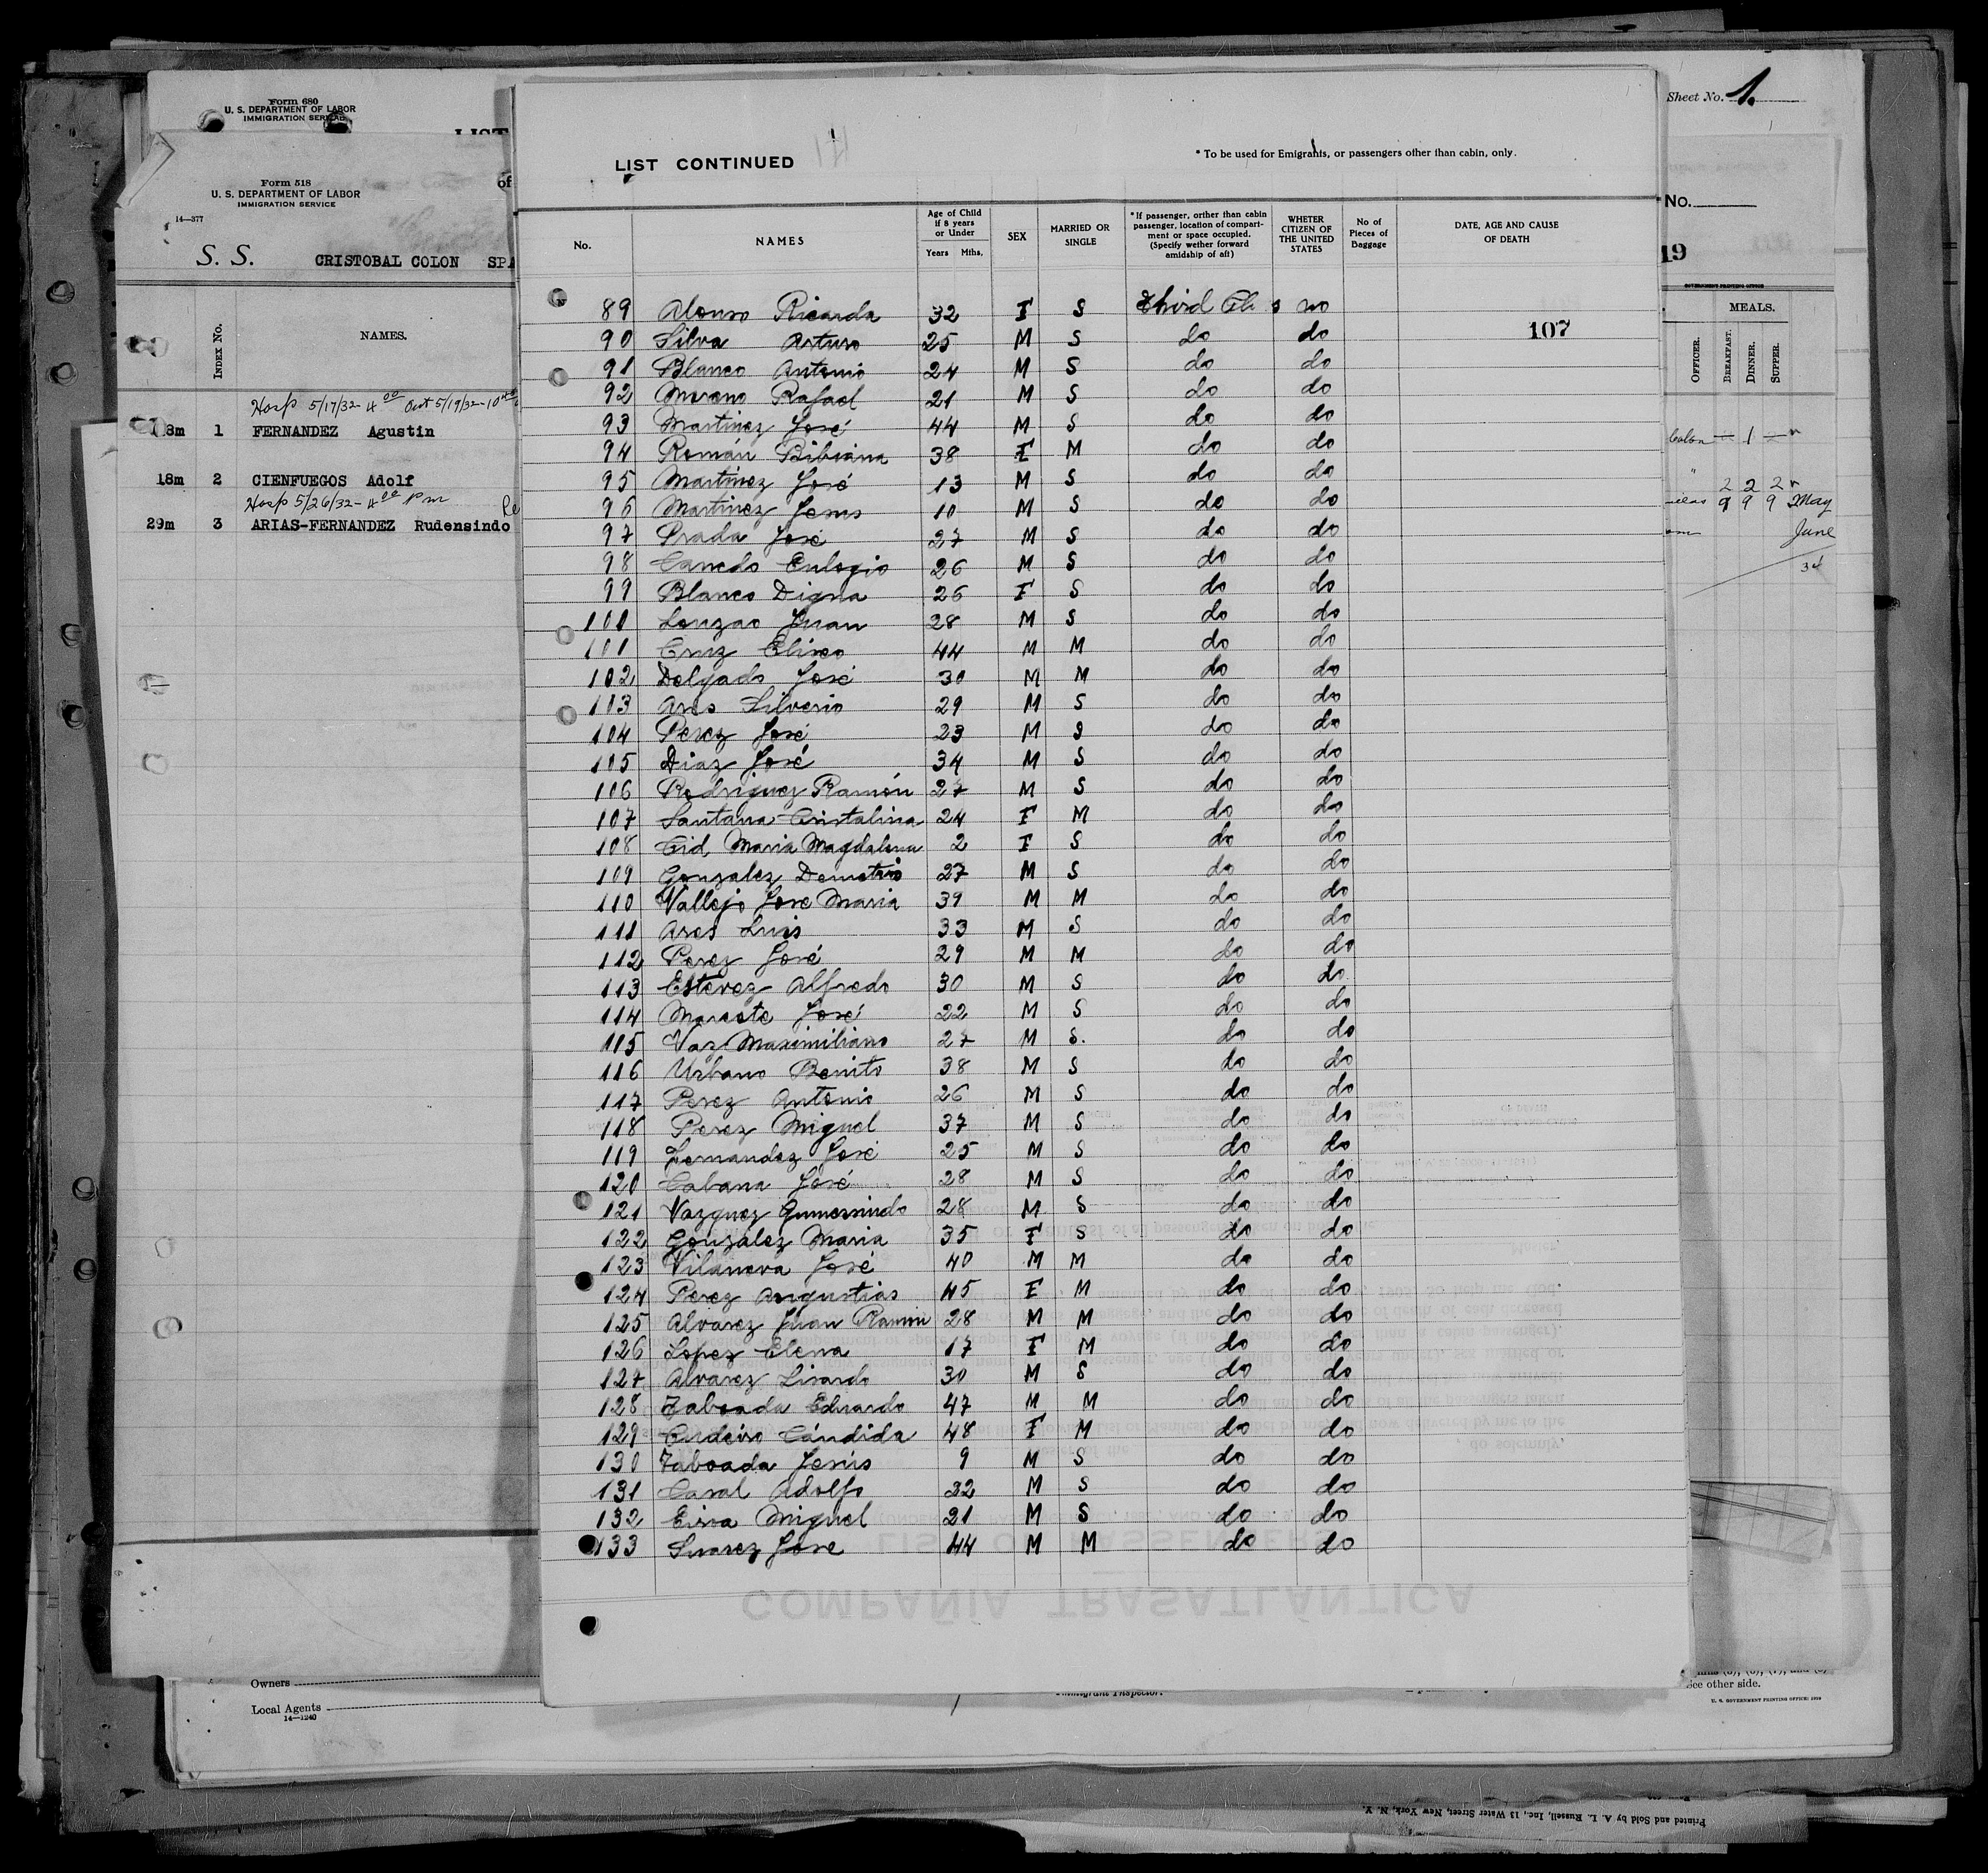 Form 680
U. S. DEPARTMENT OF LABOR
IMMIGRATION SERVICE
LIST
Form 518
U. S. DEPARTMENT OF LABOR
IMMIGRATION SERVICE
14—377
of
S. S. CRISTOBAL COLON SPA
INDEX No. NAMES.
Hosp 5/17/32 - 4 00 Out 5/19/32 - 10
18m 1 FERNANDEZ Agustin
18m 2 CIENFUEGOS Adolf
Hosp 5/26/32 - 4 00 Pm
29m 3 ARIAS-FERNANDEZ Rudensindo
Owners
Local Agents
14—1240
Sheet No. 1.
No.
19
GOVERNMENT PRINTING OFFICE
MEALS.
OFFICER. BREAKFAST. DINNER. SUPPER.
Colon — 1 — "
2 2 2 "
9 9 9 May
June
34
See other side.
U. S. GOVERNMENT PRINTING OFFICE: 1929
Immigrant Inspector.
LIST CONTINUED
* To be used for Emigrants, or passengers other than cabin, only.
No. NAMES Age of Child if 8 years or Under Years Mths. SEX MARRIED OR SINGLE * If passenger, orther than cabin passenger, location of compartiment or space occupied. (Specify wether forward amidship of aft) WHETER CITIZEN OF THE UNITED STATES No of Pieces of Baggage DATE, AGE AND CAUSE OF DEATH
89 Alonso Ricarda 32 F S Third Cl. s no
107
90 Silva Arturo 25 M S do do
91 Blanco Antonio 24 M S do do
92 Moreno Rafael 21 M S do do
93 Martinez José 44 M S do do
94 Román Bibiana 38 F M do do
95 Martinez José 13 M S do do
96 Martinez Jesus 10 M S do do
97 Prada José 27 M S do do
98 Canedo Eulogio 26 M S do do
99 Blanco Digna 26 F S do do
100 Louzao Juan 28 M S do do
101 Cruz Eliseo 44 M M do do
102 Delgado José 30 M M do do
103 Ares Silverio 29 M S do do
104 Perez José 23 M S do do
105 Diaz José 34 M S do do
106 Rodriguez Ramón 27 M S do do
107 Santana Cristalina 24 F M do do
108 Cid Maria Magdalena 2 F S do do
109 Gonzalez Demetrio 27 M S do do
110 Vallejo Jose Maria 39 M M do do
111 Ares Luis 33 M S do do
112 Perez José 29 M M do do
113 Estevez Alfredo 30 M S do do
114 Mareste José 22 M S do do
115 Vaz Maximiliano 27 M S. do do
116 Urbano Benito 38 M S do do
117 Perez Antonio 26 M S do do
118 Perez Miguel 37 M S do do
119 Fernandez José 25 M S do do
120 Cabana José 28 M S do do
121 Vazquez Gumersindo 28 M S do do
122 González Maria 35 F S do do
123 Vilanova José 40 M M do do
124 Perez Angustias 45 F M do do
125 Alvarez Juan Ramón 28 M M do do
126 Lopez Elena 17 F M do do
127 Alvarez Lisardo 30 M S do do
128 Taboada Eduardo 47 M M do do
129 Cudeiro Cándida 48 F M do do
130 Taboada Jesús 9 M S do do
131 Casal Adolfo 32 M S do do
132 Eiroa Miguel 21 M S do do
133 Suarez Jose 44 M M do do
COMPAÑIA TRASATLÁNTICA
Printed and Sold by A. L. Russell, Inc., 13 Water Street, New York, N. Y.